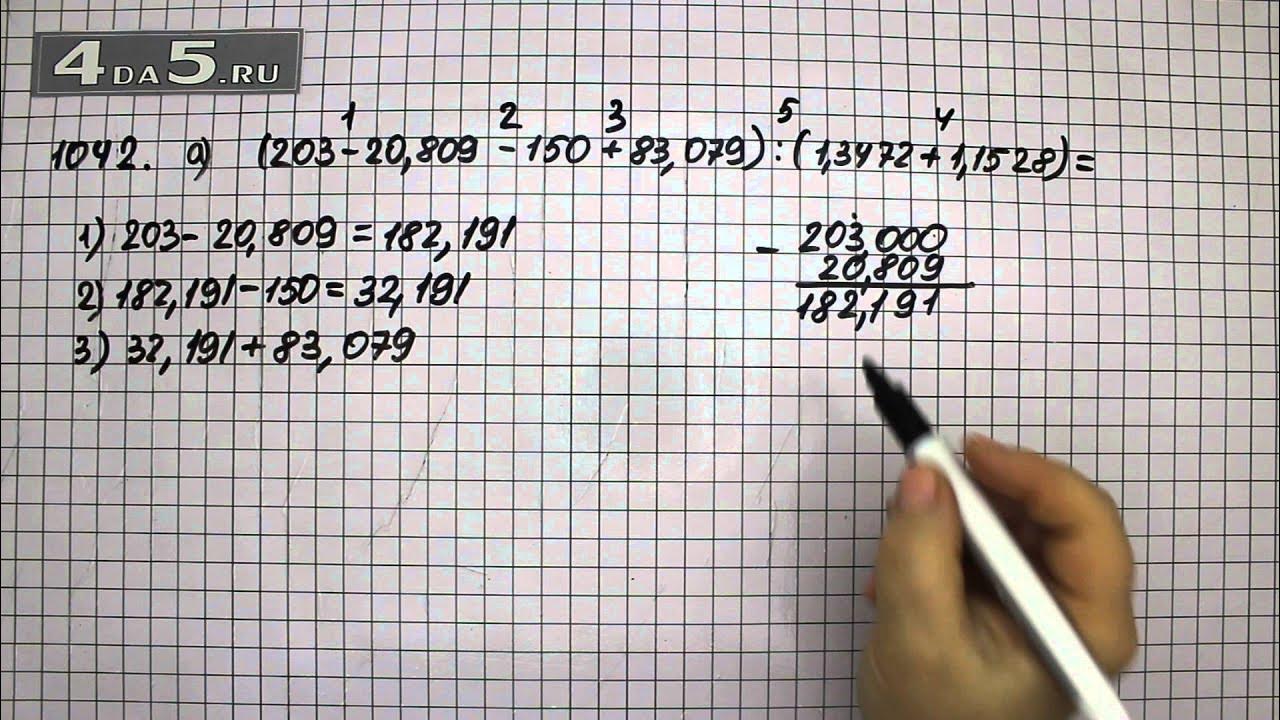 4DA5.RU
1 2 3 5 4
1042. а) (203-20,809 -150 + 83,079) : (1,3472 + 1,1528) =
1) 203 - 20,809 = 182,191
2) 182,191 - 150 = 32,191
3) 32,191 + 83,079
- 203,000
20,809
182,191